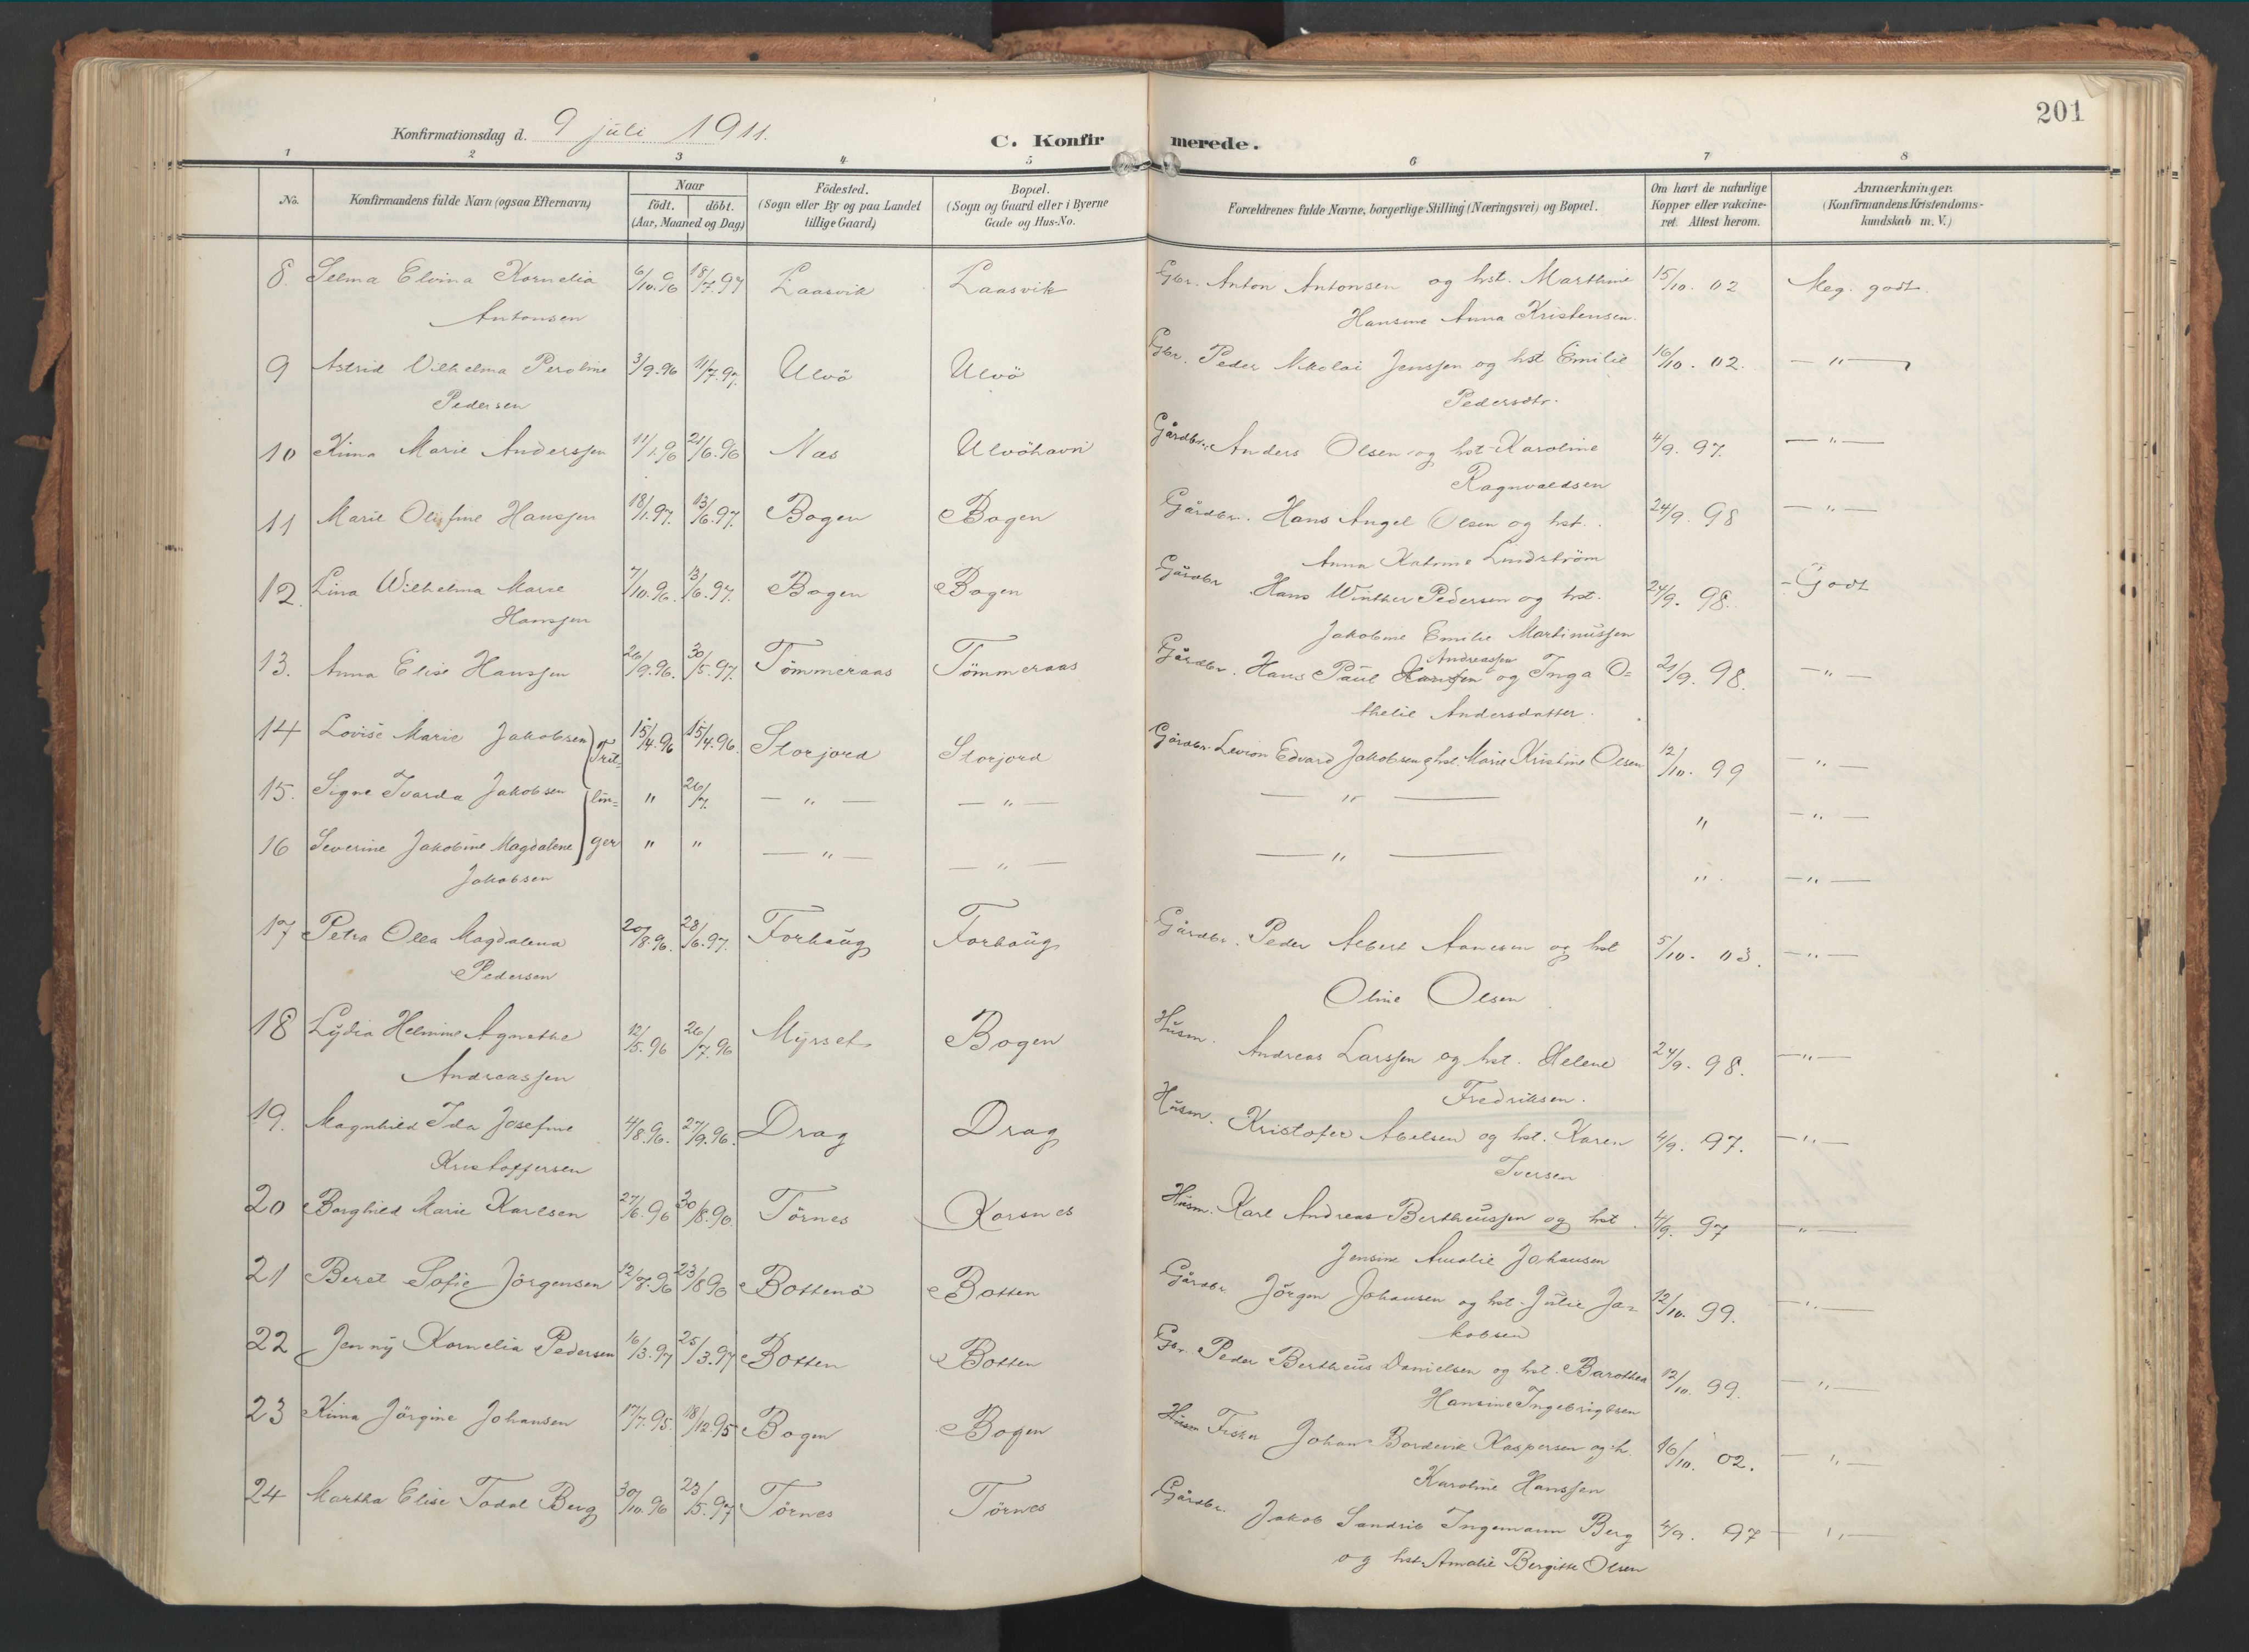 201
Konfirmationsdag d. 9 juli 1911.
C. Konfirmerede.
1 2 3 4 5 6 7 8
No.
Konfirmandens fulde Navn (ogsaa Efternavn)
Naar
födt. döbt.
(Aar, Maaned og Dag)
Födested.
(Sogn eller By og paa Landet
tillige Gaard)
Bopæl.
(Sogn og Gaard eller i Byerne
Gade og Hus-No.
Forældrenes fulde Navne, borgerlige Stilling (Næringsvei) og Bopæl.
Om havt de naturlige
Kopper eller vakcine-
ret. Attest herom.
Anmærkninger.
(Konfirmandens Kristendoms-
kundskab m. V.)
8. Selma Elvina Kornelia 6/10.96 18/7.97 Laasvik Laasvik Gbr. Anton Antonsen og hst. Marthine 15/10. 02 Meg. godt.
Antonsen Hansine Anna Kristensen.
9 Astrid Vilhelma Peroline 3/9.96 11/7.97. Ulvö Ulvö Gbr. Peder Nikolai Jenssen og hst Emilie 16/10. 02. — " —
Pedersen Pedersdtr.
10 Kima Marie Anderssen 11/1.96 21/6.96 Næs Ulvöhavn Gårdbr. Anders Olsen og hst Karoline 4/9. 97. — " —
Ragnvaldsen
11 Marie Olufine Hanssen 18/1.97. 13/6.97. Bogen Bogen Gårdbr. Hans Angel Olsen og hst. 24/9. 98 — " —
Anna Katrine Lindström
12. Lina Wilhelma Marie 7/10.96. 13/6.97. Bogen Bogen Gårdbr Hans Winther Pedersen og hst. 24/9. 98. - Godt
Hanssen Jakobine Emilie Martinussen
13. Anna Elise Hanssen 26/9.96. 30/5.97. Tömmeraas Tömmeraas Gårdbr. Hans Paul Hanssen Andreassen og Inga O= 21/9. 98. — " —
thelie Andersdatter.
14 Lovise Marie Jakobsen Tril= 15/4.96 15/4.96. Storjord Storjord Gårdbr. Levion Edvard Jakobsen og hst. Marie Kristine Olsen 12/10. 99 — " —
15. Signe Ivarda Jakobsen lin= " 26/7. — " — — " — — " — " — " —
16 Severine Jakobine Magdalene ger " " — " — — " — — " — " — " —
Jakobsen
17 Petra Olea Magdalena 20/8.96. 28/6.97. Forhaug Forhaug Gårdbr. Peder Albert Aanesen og hst 5/10. 03. — " —
Pedersen Oline Olsen
18 Lydia Helmine Agnethe 12/5.96 26/7.96 Myrset Bogen Husm. Andreas Larssen og hst. Helene 24/9. 98. — " —
Andreassen Fredriksen.
19. Magnhild Ida Josefine 4/8.96. 27/9.96. Drag Drag Husm. Kristofer Abelsen og hst. Karen 4/9. 97. — " —
Kristoffersen Iversen
20 Borghild Marie Karlsen 27/6.96 30/8.96. Törnes Korsnes Husm. Karl Andreas Bertheussen og hst. 4/9. 97 — " —
Jensine Amalie Johansen
21 Beret Sofie Jörgensen 12/7.96 23/8 96 Bottenö Botten Gårdbr. Jörgen Johansen og hst. Julie Ja= 12/10. 99. — " —
kobsen
22 Jenny Kornelia Pedersen 16/3.97 25/3.97 Botten Botten Gbr. Peder Bertheus Danielsen og hst. Barothea 12/10. 99. — " —
Hansine Ingebrigtsen
23 Kima Jörgine Johansen 17/7.95. 18/12.95 Bogen Bogen Husm Fisker Johan Bordevik Kaspersen og h. 16/10. 02. — " —
Karoline Hanssen
24 Martha Elise Todal Berg 30/10.96 23/5.97 Törnes Törnes Gårdbr. Jakob Sandrib Ingemann Berg 4/9. 97 — " —
og hst Amalie Bergitte Olsen